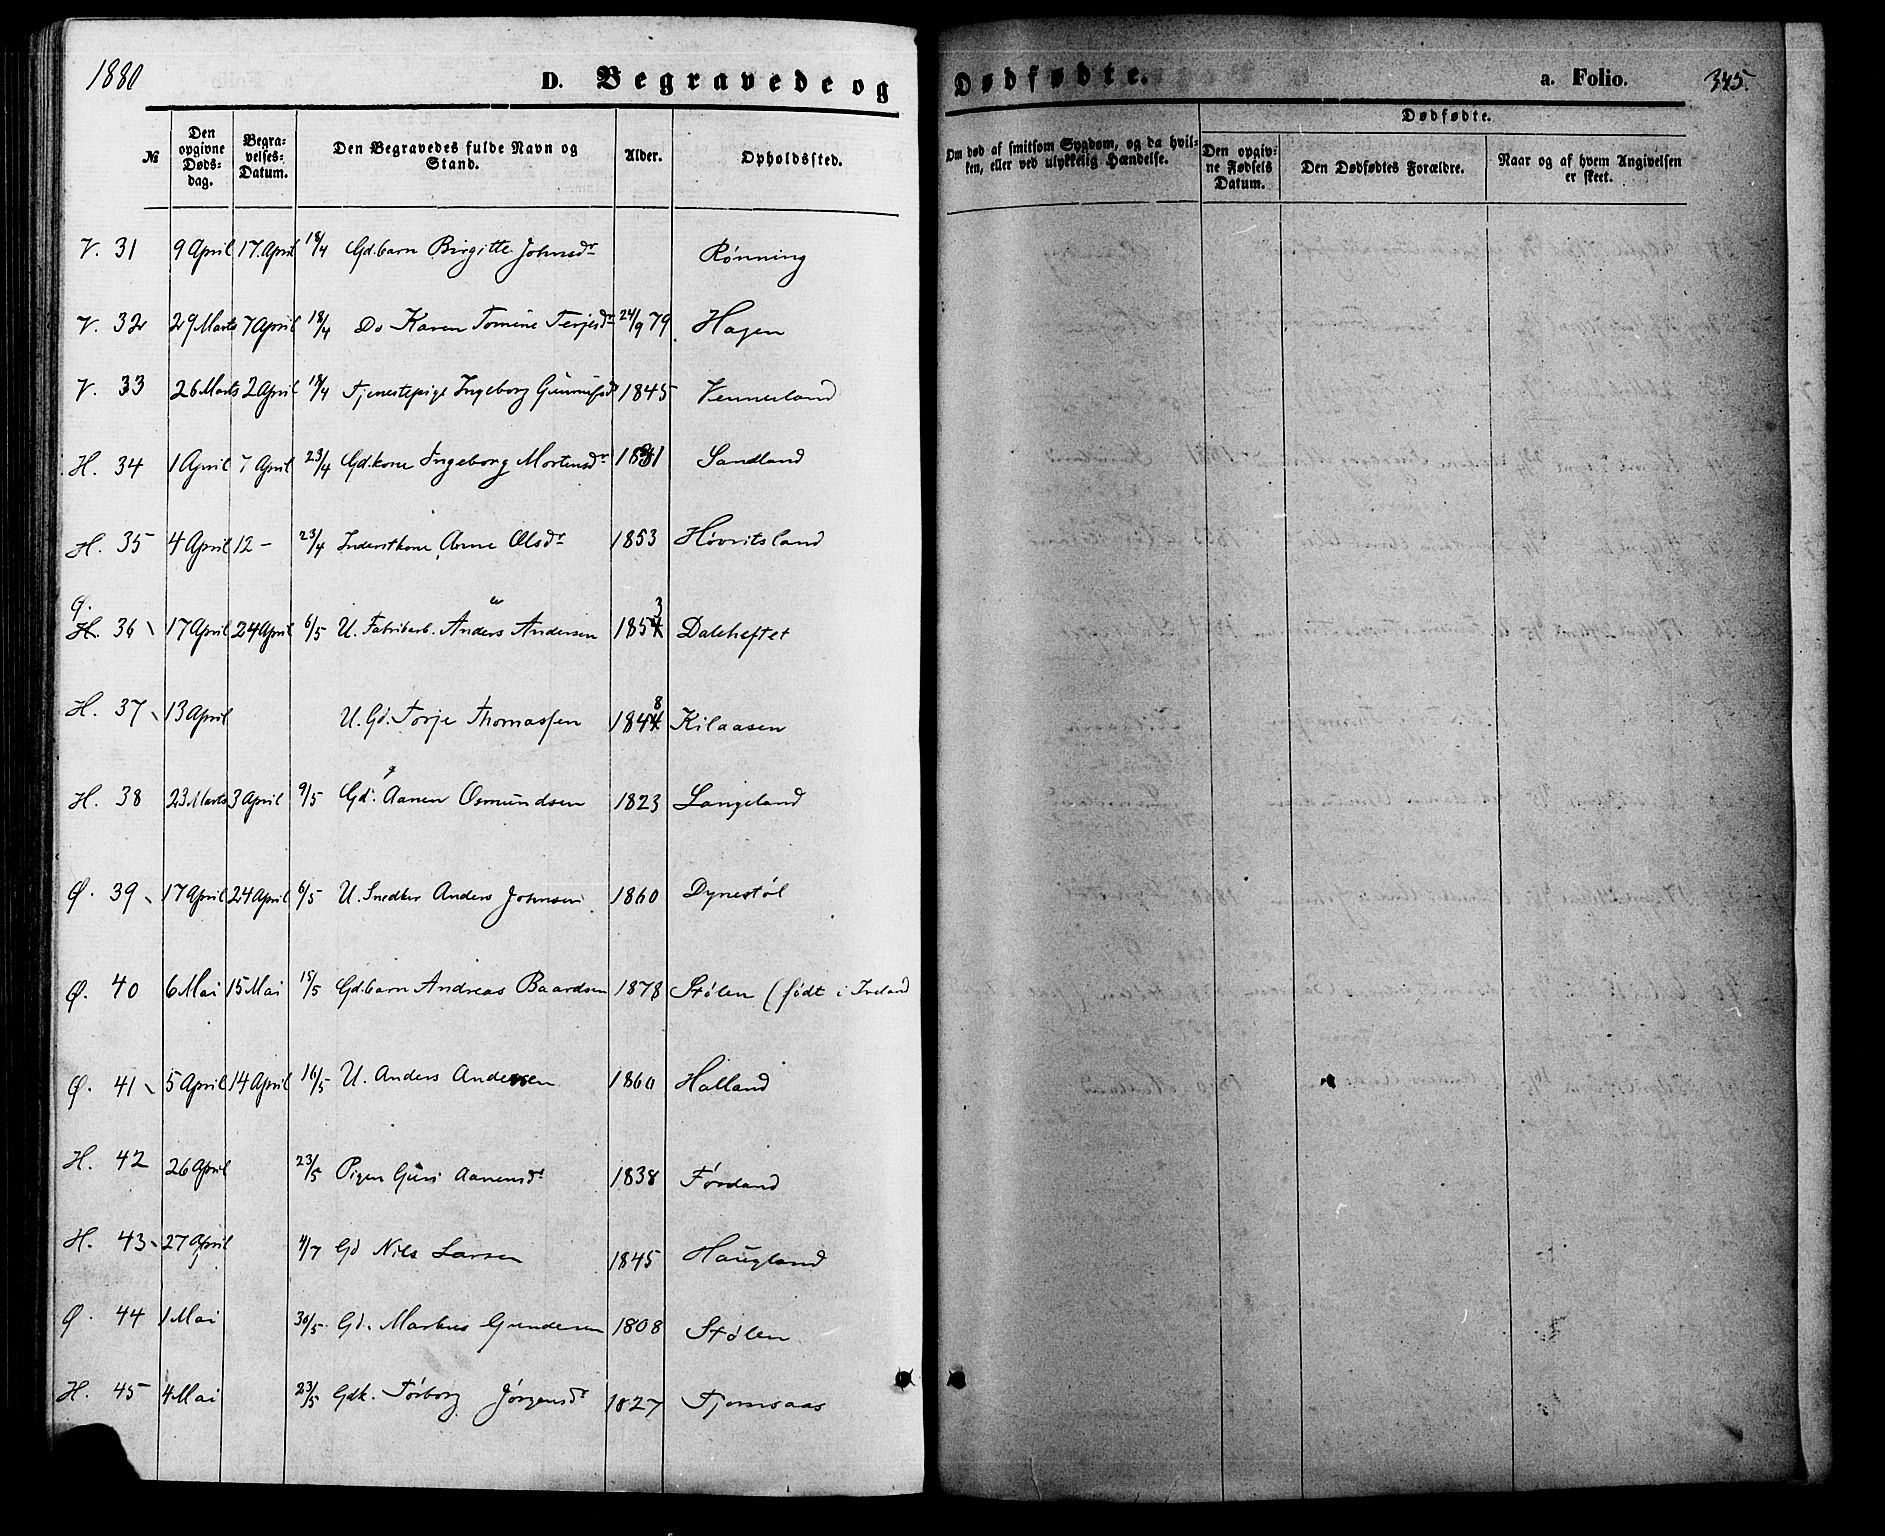 1880 D. Begravede og Dødfødte. a. Folio. 345.
№ Den opgivne Døds-dag. Begra-velses-Datum. Den Begravedes fulde Navn og Stand. Alder. Opholdssted. Om død af smitsom Sygdom, og da hvil-ken, eller ved ulykkelig Hændelse. Dødfødte. Den opgiv-ne Fødsels Datum. Den Dødfødtes Forældre. Naar og af hvem Angivelsen er skeet.
V. 31 9 April 17 April 18/4 Gdbarn Birgitte Johnsdr Rønning
V. 32 29 Marts 7 April 18/4 Do Karen Tomine Terjesdr 24/9 79 Hagen
V. 33 26 Marts 2 April 18/4 Tjenestepige Ingeborg Gunnufsdr 1845 Vennerland
H. 34 1 April 7 April 23/4 Gdkone Ingeborg Mortensdr Sandland
H. 35 4 April 12 - 23/4 Inderstkone Anne Olsdr 1853 Høvritsland
Ø. H. 36 17 April 24 April 6/5 U. Fabrikarb. Anders Andersen 1853 Daleheftet
H. 37 13 April U. Gd. Torje Thomassen 1848 Kilaasen
H. 38 23 Marts 3 April 9/5 Gd. Aanen Osmundsen 1823 Langeland
Ø. 39 17 April 24 April 6/5 U. Snedker Anders Johnsen 1860 Dynestøl
Ø. 40 6 Mai 15 Mai 15/5 Gdbarn Andreas Baardsen 1878 Stølen (født i Iveland
Ø. 41 5 April 14 April 16/5 U. Anders Andersen 1860 Halland
H. 42 26 April 23/5 Pigen Guri Aanensdr 1838 Førland
H. 43 27 April 4/7 Gd Nils Larsen 1845 Haugland
Ø. 44 1 Mai 30/5 Gd. Markus Gundersen 1808 Stølen
H. 45 4 Mai 23/5 Gdk. Torborg Jørgensdr 1827 Fjomsaas